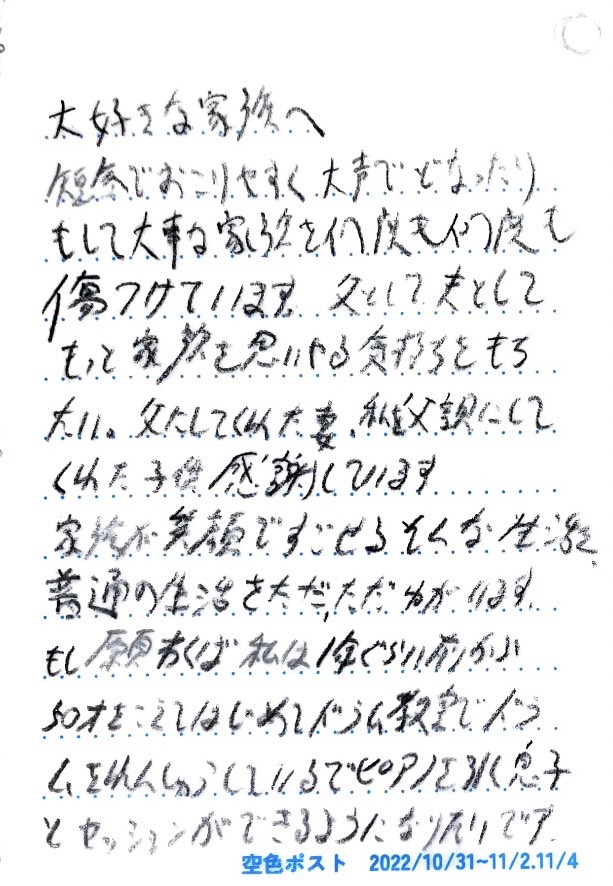 大好きな家族へ
短気でおこりやすく大声でどなったり
もして大事な家族を何度も何度も
傷つけています 父として夫として
もっと家族を思いやる気持ちをもち
たい。父にしてくれた妻、私を父親にして
くれた子供 感謝しています
家族が笑顔ですごせるそんな生活を、
普通の生活をただ、ただねがいます。
もし願わくば私は1年ぐらい前から
50才をこえてはじめてドラム教室でドラ
ムをれんしゅうしているでピアノを引く息子
とセッションができるようになりたいです。
空色ポスト 2022/10/31~11/2.11/4